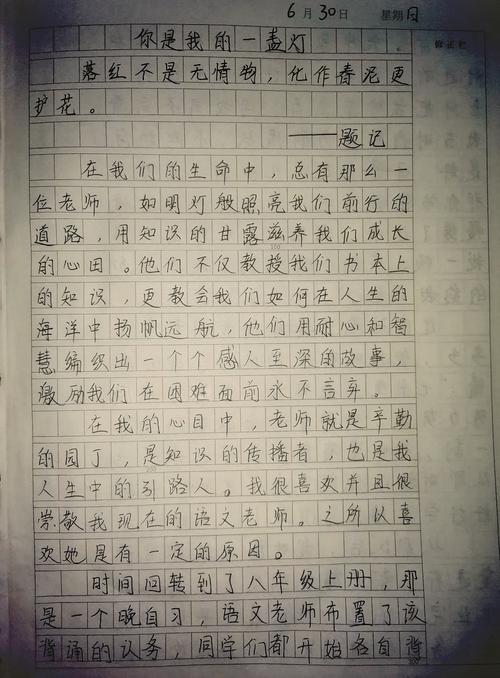 6月30日 星期日
你是我的一盏灯
修正栏
落红不是无情物，化作春泥更
护花。
——题记
在我们的生命中，总有那么一
位老师，如明灯般照亮我们前行的
道路，用知识的甘露滋养我们成长
的心田。他们不仅教授我们书本上
的知识，更教会我们如何在人生的
海洋中扬帆远航，他们用耐心和智
慧编织出一个个感人至深的故事，
激励我们在困难面前永不言弃。
在我的心目中，老师就是辛勤
的园丁，是知识的传播者，也是我
人生中的引路人。我很喜欢并且很
崇敬我现在的语文老师。之所以喜
欢她是有一定的原因。
时间回转到了八年级上册，那
是一个晚自习，语文老师布置了该
背诵的认务，同学们都开始各自背